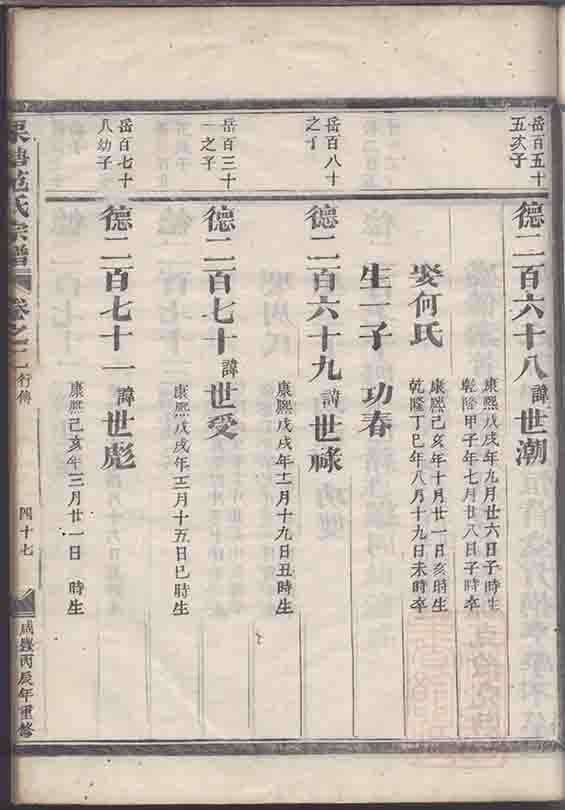 岳百五十
五亥子
德二百六十八 諱世潮
康熙戊戌年九月廿六日子時生
乾隆甲子年七月廿八日子時卒
娶何氏
康熙己亥年十月廿一日亥時生
乾隆丁巳年八月十九日未時卒
生一子 功春
岳百八十
之子
德二百六十九 諱世祿
康熙戊戌年十二月十九日丑時生
岳百三十
一之子
德二百七十 諱世受
康熙戊戌年十二月十五日巳時生
岳百七十
八幼子
德二百七十一 諱世彪
康熙己亥年三月廿一日 時生
范氏宗譜 卷之二 行傳
四十七
咸豐丙辰年重修